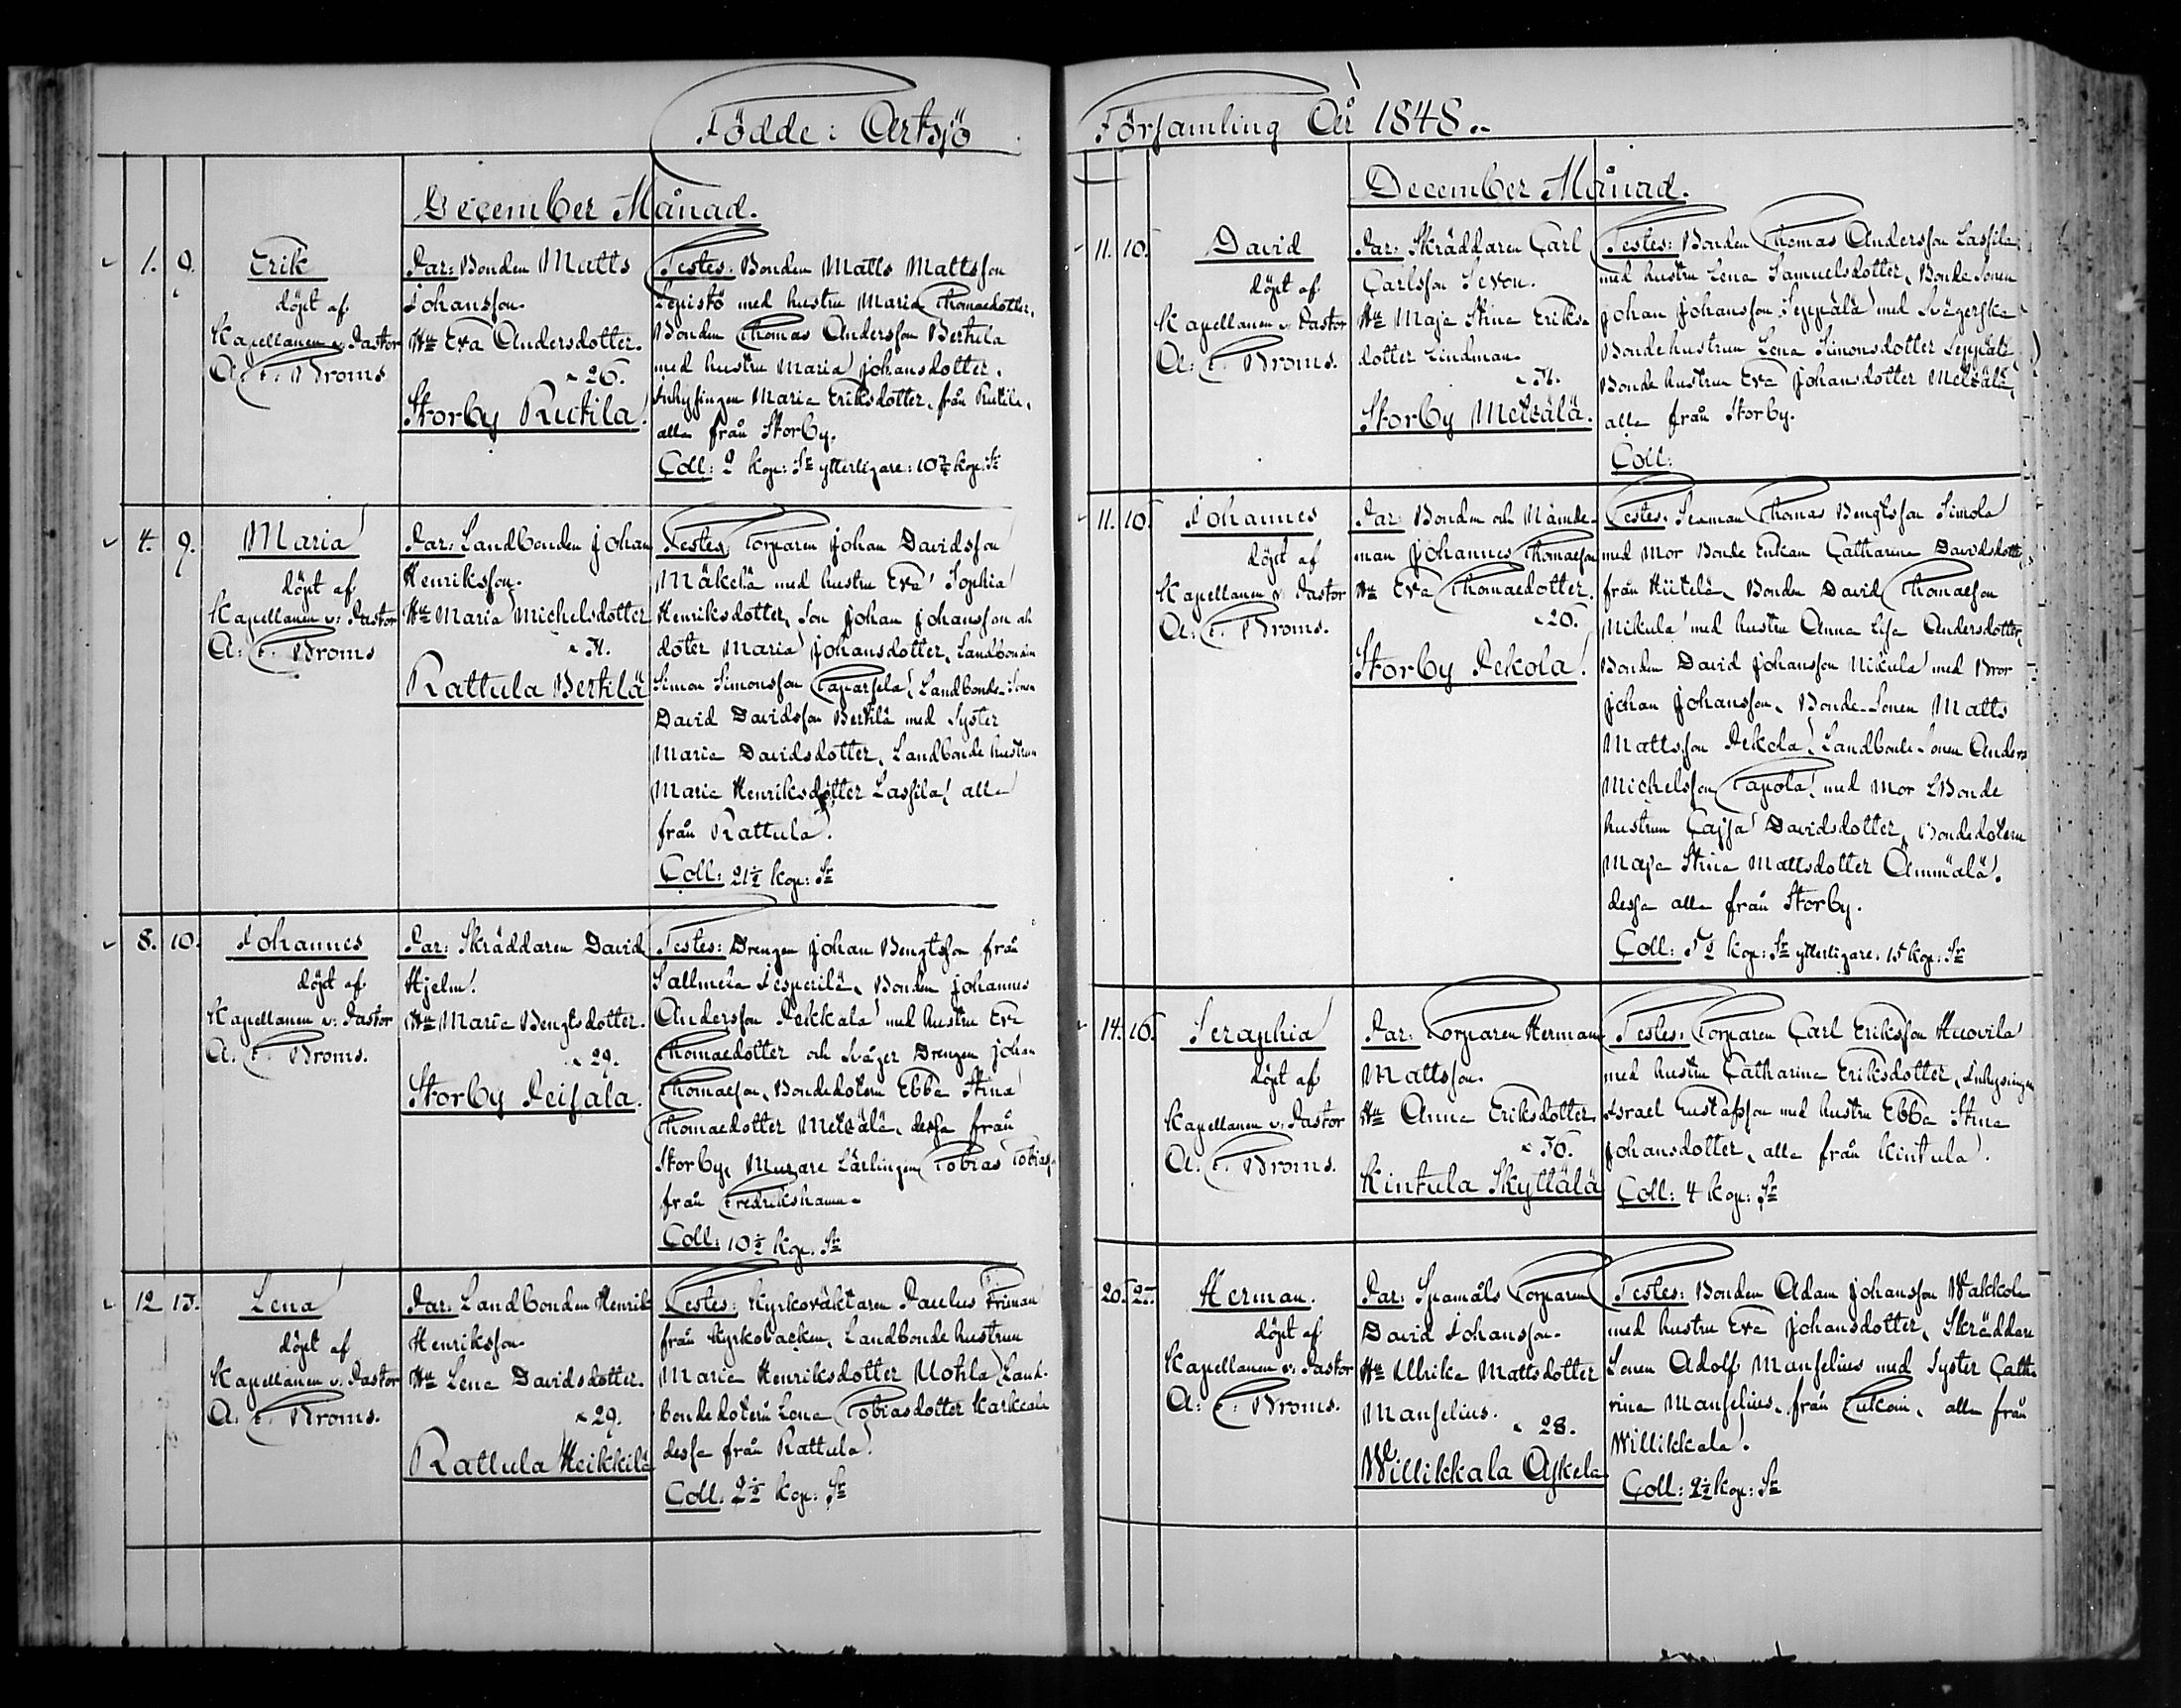 Födde i Artsjö
December Månad.
1. 9. Erik
döpt af
Kapellanen v. Pastor
A: F. Broms
Par: Bonden Matts
Johansson.
Hu Eva Andersdotter.
26.
Storby Ruckila.
Testes: Bonden Matts Mattsson
Lepistö med hustru Maria Thomaedotter,
Bonden Thomas Andersson Bertula
med hustru Maria Johansdotter.
Inhysingen Maria Eriksdotter, från
alla från Storby.
Coll: 2 kop: Sr ytterligare: 10½ kop. Sr
4. 9. Maria
döpt af
Kapellanen v: Pastor
A: F. Broms
Par: Landbonden Johan
Henriksson.
Hu Maria Michelsdotter
Rattula Bertilä
Testes: Torparen Johan Davidsson
Mäkelä med hustru Eva Sophia
Henriksdotter, Son Johan Johansson och
doter Maria Johansdotter, Landbonden
Simon Simonsson Landbonde-Sonen
David Davidsson Bertilä med Syster
Maria Davidsdotter, Landbonde hustrun
Maria Henriksdotter Lassila! alla
från Rattula.
Coll: 21½ kop: Sr
8. 10. Johannes
döpt af
Kapellanen v: Pastor
A. F. Broms.
Par: Skräddaren David
Hjelm.
Hu Maria Bengtsdotter.
29.
Storby Peisala.
Testes: Drengen Johan Bengtsson från
Sallmela Jesperilä, Bonden Johannes
Andersson Pekkala med hustru Eva
Thomaedotter och Svåger Drengen Johan
Thomaeson, Bondedotern Ebba Stina
Thomaedotter Metsälä, dessa från
Storby, Murare Lärlingen Tobias
från Fredrikshamn.
Coll: 10½ kop. Sr
12 13. Lena
döpt af
Kapellanen v. Pastor
A: F. Broms.
Par: Landbonden Henrik
Henriksson
Hu Lena Davidsdotter.
29.
Rattula Heikkilä
Testes: Kyrkoväktaren Paulus Friman
från Kyrkobacken, Landbonde hustrun
Maria Henriksdotter Uotila, Land-
bonde dotern Lena Tobiasdotter
dessa från Rattula.
Coll. 2½ kop: Sr
Församling År 1848.
December Månad.
11. 10. David
döpt af
Kapellanen v. Pastor
A: F. Broms.
Par: Skräddaren Carl
Carlsson Sevon.
Hu Maja Stina Eriks-
dotter Lindman.
Storby Metsälä.
Testes: Bonden Thomas Andersson Lassila
med hustru Lena Samuelsdotter, Bonde Sonen
Johan Johansson Seppälä med Svägerska
Bondehustrun Lena Simonsdotter
Bonde hustrun Eva Johansdotter Metsälä,
alla från Storby.
Coll:
11. 10. Johannes
döpt af
Kapellanen v. Pastor
A: F. Broms.
Par: Bonden och Nämde-
man Johannes Thomaeson
Hu Eva Thomaedotter.
26.
Storby Pekola.
Testes: Sexman Thomas Bengtsson Simola
med Mor Bonde Enkan Catharina Davidsdotter
från Bonden David Thomaeson
Nikula med hustru Anna Lisa Andersdotter,
Bonden David Johansson Nikula med Bror
Johan Johansson, Bonde-Sonen Matts
Mattsson Pekola, Landbonde-Sonen Anders
Michelsson Tapola, med Mor LBonde
hustrun Cajsa Davidsdotter, Bondedotern
Maja Stina Mattsdotter Ämmälä.
dessa alla från Storby.
Coll: kop: Sr ytterligare. 15 kop: Sr
14. 16. Seraphia
döpt af
Kapellanen v. Pastor
A: F. Broms.
Par: Torparen Herman
Mattsson.
Hu Anna Eriksdotter
36.
Kintula Skyttälä
Testes: Torparen Carl Eriksson Huovila
med hustru Catharina Eriksdotter, Inhysingen
Israel Gustafsson med hustru Ebba Stina
Johansdotter, alla från Kintula.
Coll: 4 kop: Sr
20. 25. Herman.
döpt af
Kapellanen v. Pastor
A: F. Broms.
Par: Spamåls Torparen
David Johansson.
Hu Ulrika Mattsdotter
Manselius.
28.
Willikkala
Testes: Bonden Adam Johansson Wakkola
med hustru Eva Johansdotter, Skräddare
Sonen Adolf Manselius med Syster Catha-
rina Manselius, från alla från
Willikkala.
Coll: 2½ kop: Sr